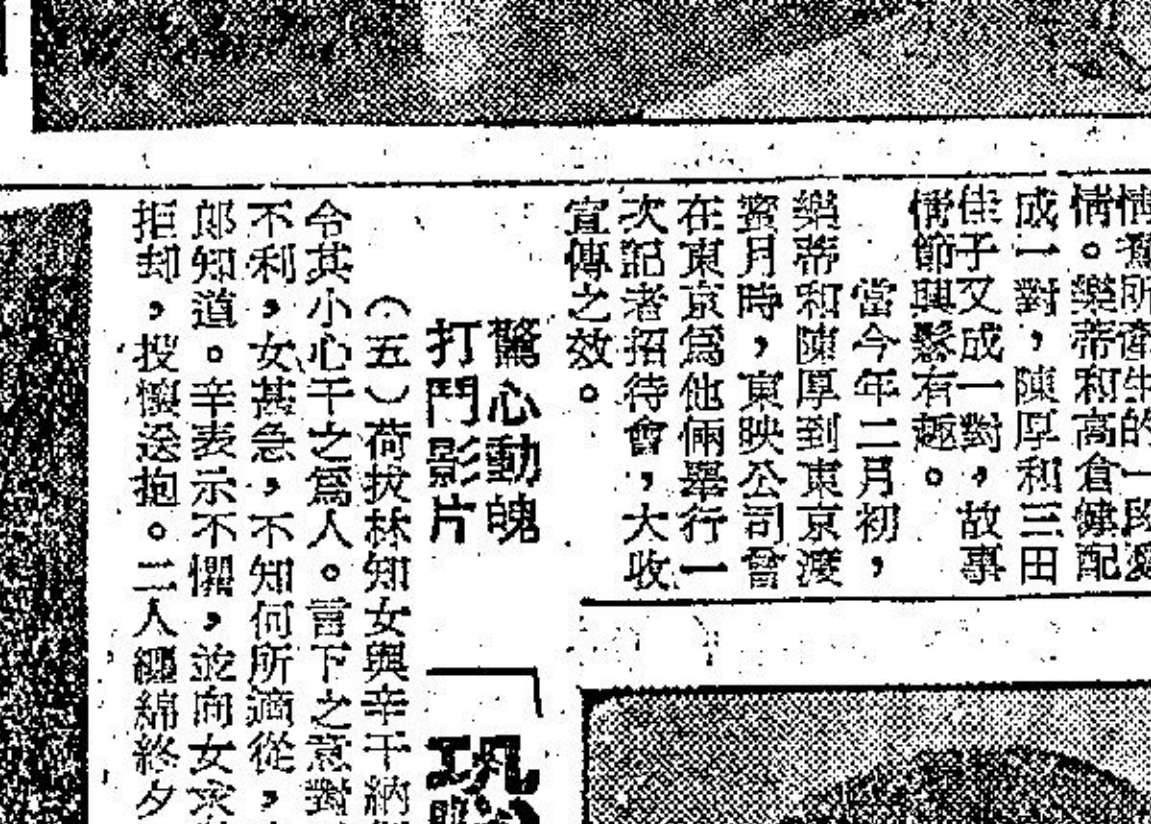 情所產生的一段愛
情。樂蒂和高倉健配
成一對，陳厚和三田
佳子又成一對，故事
情節興緻有趣。
當今年二月初，
樂蒂和陳厚到東京渡
蜜月時，東映公司曾
在東京爲他倆舉行一
次記者招待會，大收
宣傳之效。
驚心動魄
打鬥影片
（五）荷拔林知女與辛干納
令其小心干之爲人。言下之意對
不利，女甚急，不知何所適從，
郎知道。辛表示不懼，並向女求
拒却，投懷送抱。二人纏綿終夕